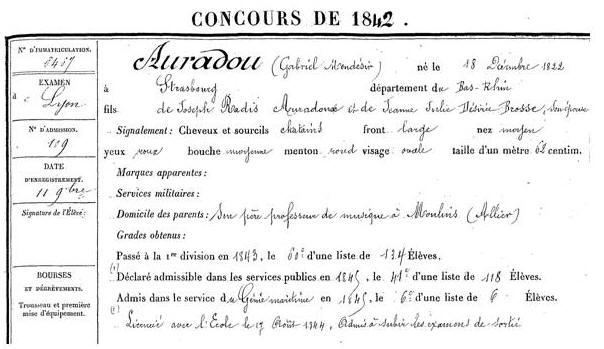 CONCOURS DE 1842.
N° D'IMMATRICULATION.
EXAMEN
à Lyon
N° D'ADMISSION.
119
DATE
D'ENREGISTREMENT.
11 9bre
Signature de l'Élève:
BOURSES
ET DÉGRÈVEMENTS.
Trousseau et première
mise d'équipement.
Auradou (Gabriel Mendésir) né le 18 Décembre 1822
à Strasbourg département du Bas-Rhin
fils de Joseph Radis Auradou et de Jeanne Julie Désirée Brosse, son épouse
Signalement: Cheveux et sourcils chatains front large nez moyen
yeux roux bouche moyenne menton rond visage ovale taille d'un mètre 62 centim.
Marques apparentes:
Services militaires:
Domicile des parents: Son père professeur de musique à Moulins (Allier)
Grades obtenus:
Passé à la 1re division en 1843, le 60e d'une liste de 134 Élèves.
(1)
Déclaré admissible dans les services publics en 1845, le 41e d'une liste de 118 Élèves.
Admis dans le service du Génie maritime en 1845, le 6e d'une liste de 6 Élèves.
Licencié avec l'Ecole le 17 Août 1844, Admis à subir les examens de sortie